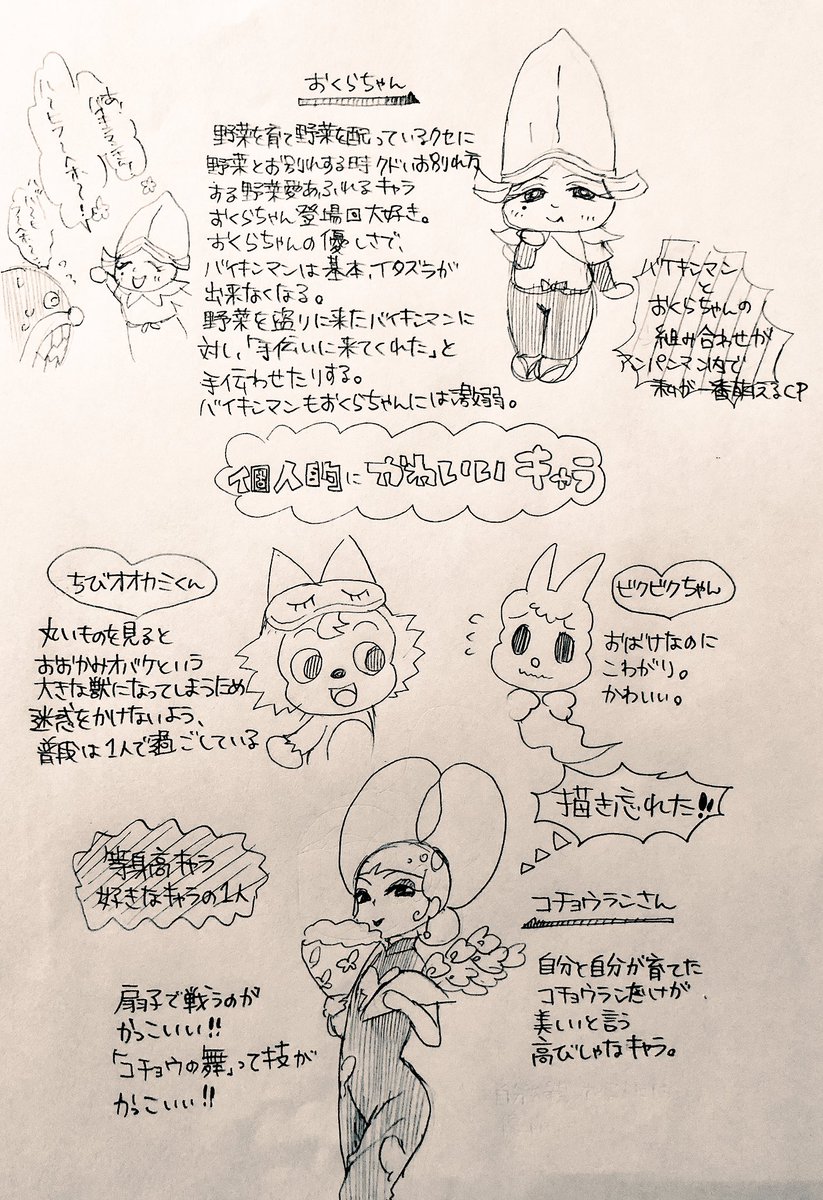 おくらちゃん
野菜を育て野菜を配っているクセに
野菜とお別れする時クドいお別れ方
する野菜愛あふれるキャラ
おくらちゃん登場回大好き。
おくらちゃんの優しさで、
バイキンマンは基本、イタズラが
出来なくなる。
野菜を盗りに来たバイキンマンに
対し、「手伝いに来てくれた」と
手伝わせたりする。
バイキンマンもおくらちゃんには激弱。
バイキンマン
と
おくらちゃんの
組み合わせが
アンパンマン内で
私が一番萌えるCP
個人的にかわいいキャラ
ちびオオカミくん
丸いものを見ると
おおかみオバケという
大きな獣になってしまうため
迷惑をかけないよう、
普段は1人で過ごしている
ビクビクちゃん
おばけなのに
こわがり。
かわいい。
描き忘れた!!
等身高キャラ
好きなキャラの1人
コチョウランさん
自分と自分が育てた
コチョウランだけが
美しいと言う
高びしゃなキャラ。
扇子で戦うのが
かっこいい!!
「コチョウの舞」って技が
かっこいい!!